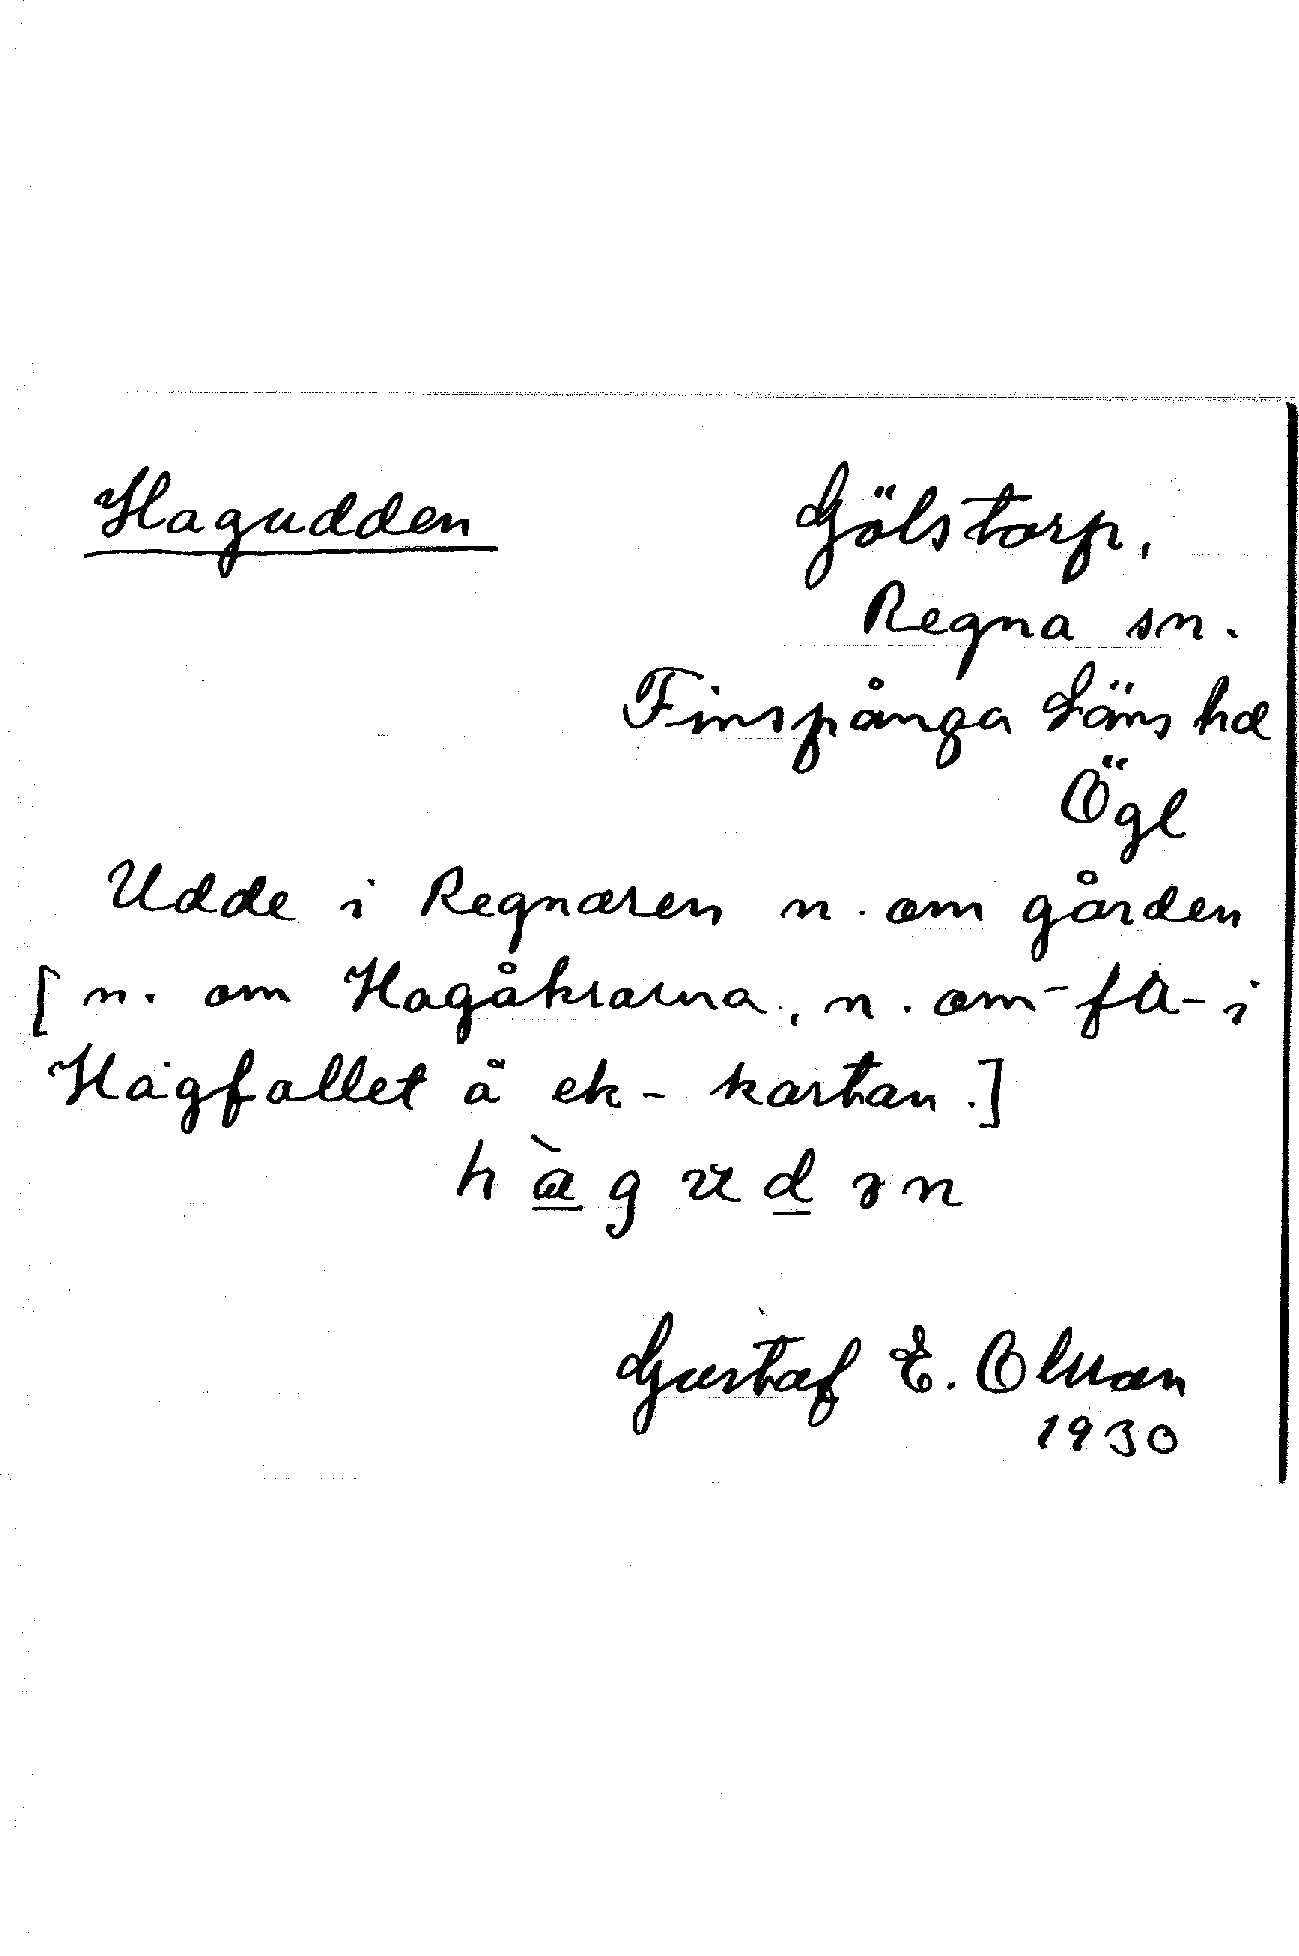 Hagudden
Gölstorp,
Regna sn.
Finspånga Läns hd
Ögl
Udde i Regnaren n. om gården
[ n. om Hagåkrarna, n. om -fa- i
Hagfallet å ek-kartan.]
Gustaf E. Olsson
1930